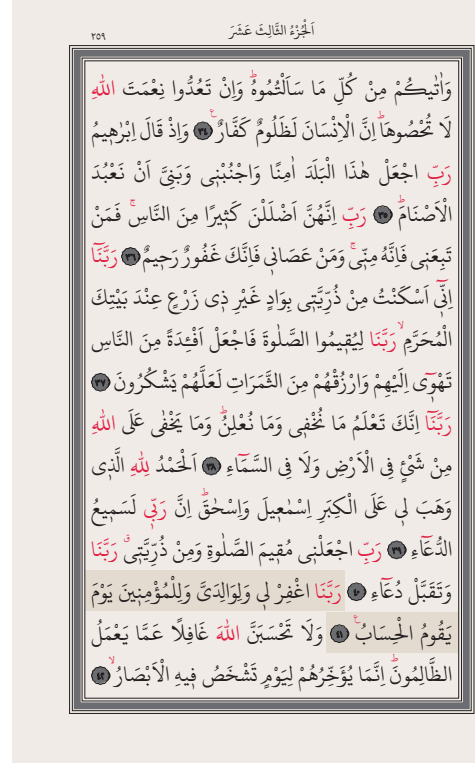 اَلْجُزْءُ الثَّالِثَ عَشَرَ
٢٥٩
وَاٰتٰيكُمْ مِنْ كُلِّ مَا سَاَلْتُمُوهُۜ وَاِنْ تَعُدُّوا نِعْمَتَ اللّٰهِ
لَا تُحْصُوهَاۜ اِنَّ الْاِنْسَانَ لَظَلُومٌ كَفَّارٌ۟ ﴿٣٤﴾ وَاِذْ قَالَ اِبْرٰه۪يمُ
رَبِّ اجْعَلْ هٰذَا الْبَلَدَ اٰمِنًا وَاجْنُبْن۪ي وَبَنِيَّ اَنْ نَعْبُدَ
الْاَصْنَامَۜ ﴿٣٥﴾ رَبِّ اِنَّهُنَّ اَضْلَلْنَ كَث۪يرًا مِنَ النَّاسِۚ فَمَنْ
تَبِعَن۪ي فَاِنَّهُ مِنّ۪يۚ وَمَنْ عَصَان۪ي فَاِنَّكَ غَفُورٌ رَح۪يمٌ ﴿٣٦﴾ رَبَّنَٓا
اِنّ۪ٓي اَسْكَنْتُ مِنْ ذُرِّيَّت۪ي بِوَادٍ غَيْرِ ذ۪ي زَرْعٍ عِنْدَ بَيْتِكَ
الْمُحَرَّمِۙ رَبَّنَا لِيُق۪يمُوا الصَّلٰوةَ فَاجْعَلْ اَفْـِٔدَةً مِنَ النَّاسِ
تَهْو۪ٓي اِلَيْهِمْ وَارْزُقْهُمْ مِنَ الثَّمَرَاتِ لَعَلَّهُمْ يَشْكُرُونَ ﴿٣٧﴾
رَبَّنَٓا اِنَّكَ تَعْلَمُ مَا نُخْف۪ي وَمَا نُعْلِنُۜ وَمَا يَخْفٰى عَلَى اللّٰهِ
مِنْ شَيْءٍ فِي الْاَرْضِ وَلَا فِي السَّمَٓاءِ ﴿٣٨﴾ اَلْحَمْدُ لِلّٰهِ الَّذ۪ي
وَهَبَ ل۪ي عَلَى الْكِبَرِ اِسْمٰع۪يلَ وَاِسْحٰقَۜ اِنَّ رَبّ۪ي لَسَم۪يعُ
الدُّعَٓاءِ ﴿٣٩﴾ رَبِّ اجْعَلْن۪ي مُق۪يمَ الصَّلٰوةِ وَمِنْ ذُرِّيَّت۪يۗ رَبَّنَا
وَتَقَبَّلْ دُعَٓاءِ ﴿٤٠﴾ رَبَّنَا اغْفِرْ ل۪ي وَلِوَالِدَيَّ وَلِلْمُؤْمِن۪ينَ يَوْمَ
يَقُومُ الْحِسَابُ۟ ﴿٤١﴾ وَلَا تَحْسَبَنَّ اللّٰهَ غَافِلًا عَمَّا يَعْمَلُ
الظَّالِمُونَۜ اِنَّمَا يُؤَخِّرُهُمْ لِيَوْمٍ تَشْخَصُ ف۪يهِ الْاَبْصَارُۙ ﴿٤٢﴾